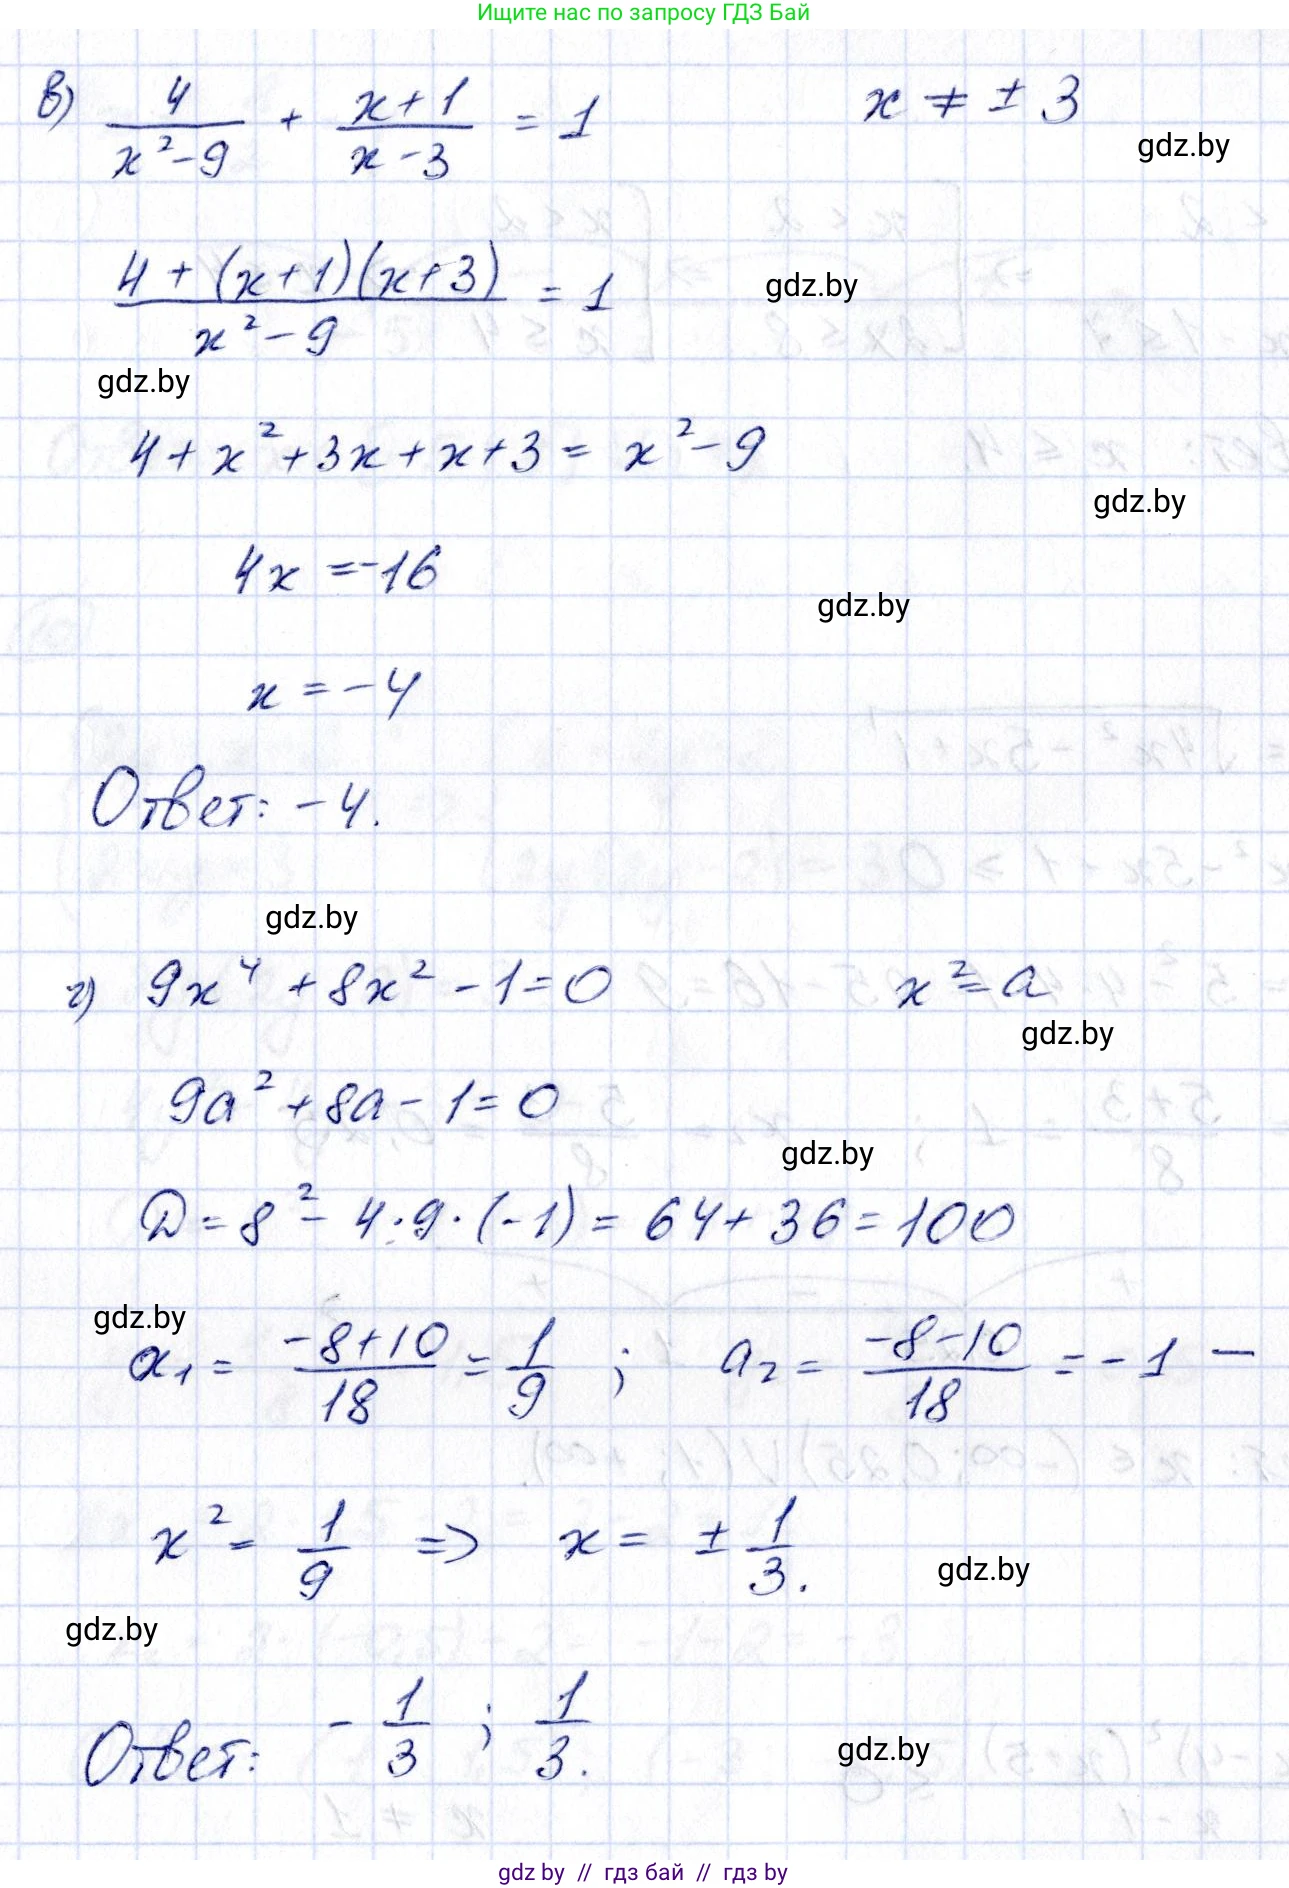 Ищите нас по запросу ГДЗ Бай
в) 4/(x²-9) + (x+1)/(x-3) = 1    x ≠ ± 3
gdz.by
(4 + (x+1)(x+3))/(x²-9) = 1
gdz.by
gdz.by
4 + x² + 3x + x + 3 = x² - 9
gdz.by
4x = -16
gdz.by
x = -4
Ответ: -4.
gdz.by
г) 9x⁴ + 8x² - 1 = 0    x² = a
gdz.by
9a² + 8a - 1 = 0
gdz.by
D = 8² - 4·9·(-1) = 64 + 36 = 100
gdz.by
a₁ = (-8+10)/18 = 1/9 ; a₂ = (-8-10)/18 = -1 —
x² = 1/9 => x = ± 1/3.
gdz.by
gdz.by
Ответ: -1/3 ; 1/3.
gdz.by
gdz.by // гдз бай // гдз by